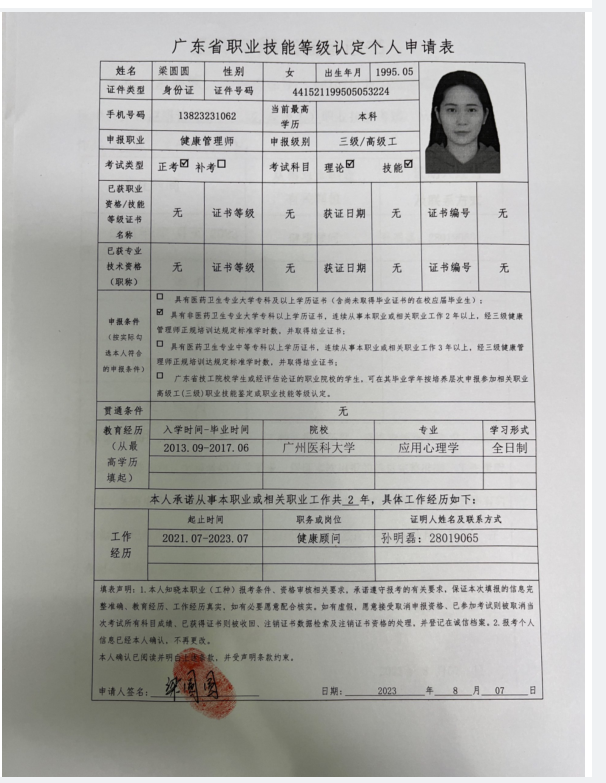 广东省职业技能等级认定个人申请表
姓名 梁圆圆 性别 女 出生年月 1995.05
证件类型 身份证 证件号码 441521199505053224
手机号码 13823231062 当前最高学历 本科
申报职业 健康管理师 申报级别 三级/高级工
考试类型 正考☑ 补考☐ 考试科目 理论☑ 技能☑
已获职业资格/技能等级证书名称 无 证书等级 无 获证日期 无 证书编号 无
已获专业技术资格(职称) 无 证书等级 无 获证日期 无 证书编号 无
申报条件(按实际勾选本人符合的申报条件)
☐ 具有医药卫生专业大学专科及以上学历证书(含尚未取得毕业证书的在校应届毕业生);
☑ 具有非医药卫生专业大学专科以上学历证书,连续从事本职业或相关职业工作2年以上,经三级健康
管理师正规培训达规定标准学时数,并取得结业证书;
☐ 具有医药卫生专业中等专科以上学历证书,连续从事本职业或相关职业工作3年以上,经三级健康管
理师正规培训达规定标准学时数,并取得结业证书;
☐ 广东省技工院校学生或经评估论证的职业院校的学生,可在其毕业学年按培养层次申报参加相关职业
高级工(三级)职业技能鉴定或职业技能等级认定。
贯通条件 无
教育经历(从最高学历填起) 入学时间-毕业时间 院校 专业 学习形式
2013.09-2017.06 广州医科大学 应用心理学 全日制
本人承诺从事本职业或相关职业工作共 2 年,具体工作经历如下:
工作经历 起止时间 职务或岗位 证明人姓名及联系方式
2021.07-2023.07 健康顾问 孙明磊:28019065
填表声明:1.本人知晓本职业(工种)报考条件、资格审核相关要求,承诺遵守报考的有关要求,保证本次填报的信息完
整准确、教育经历、工作经历真实,如有必要愿意配合核实,如有虚假,愿意接受取消申报资格、已参加考试则被取消当
次考试所有科目成绩、已获得证书则被收回、注销证书数据检索及注销证书资格的处理,并登记在诚信档案。2.报考个人
信息已经本人确认,不再更改。
本人确认已阅读并明白上述条款,并受声明条款约束。
申请人签名: 梁圆圆 日期: 2023 年 8 月 07 日